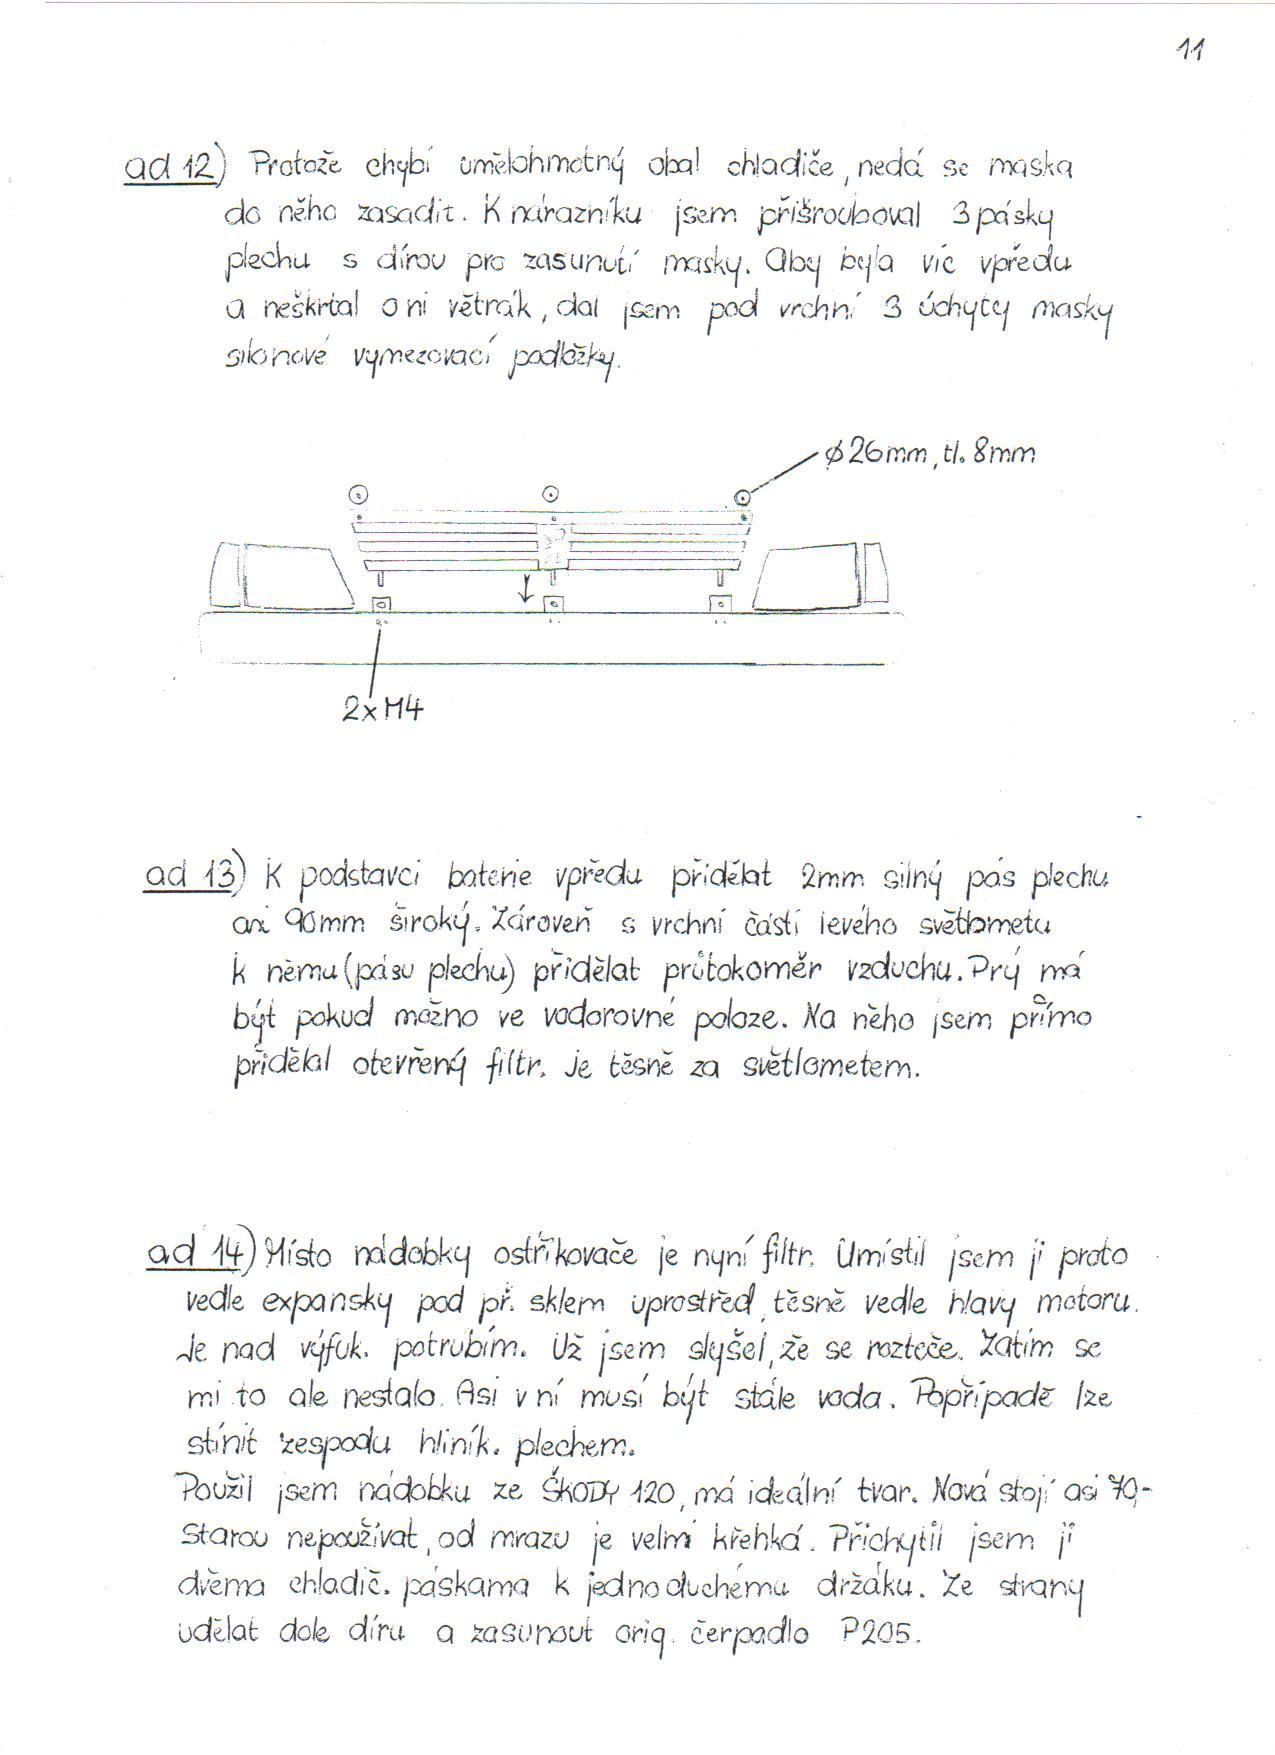 11
ad 12) Protože chybí umělohmotný obal chladiče, nedá se maska
do něho zasadit. K nárazníku jsem přišrouboval 3 pásky
plechu s dírou pro zasunutí masky. Aby byla víc vpředu
a neškrtal o ni větrák, dal jsem pod vrchní 3 úchyty masky
silonové vymezovací podložky.
ø 26mm, tl. 8mm
2x M4
ad 13) K podstavci baterie vpředu přidělat 2mm silný pás plechu
asi 90mm široký. Zároveň s vrchní částí levého světlometu
k němu (pásu plechu) přidělat průtokoměr vzduchu. Prý má
být pokud možno ve vodorovné poloze. Na něho jsem přímo
přidělal otevřený filtr. Je těsně za světlometem.
ad 14) Místo nádobky ostřikovače je nyní filtr. Umístil jsem ji proto
vedle expansky pod př. sklem uprostřed, těsně vedle hlavy motoru.
Je nad výfuk. potrubím. Už jsem slyšel, že se rozteče. Zatím se
mi to ale nestalo. Asi v ní musí být stále voda. Popřípadě lze
stínit zespodu hliník. plechem.
Použil jsem nádobku ze ŠKODY 120, má ideální tvar. Nová stojí asi 70,-
Starou nepoužívat, od mrazu je velmi křehká. Přichytil jsem ji
dvěma chladič. páskama k jednoduchému držáku. Ze strany
udělat dole díru a zasunout orig. čerpadlo P205.